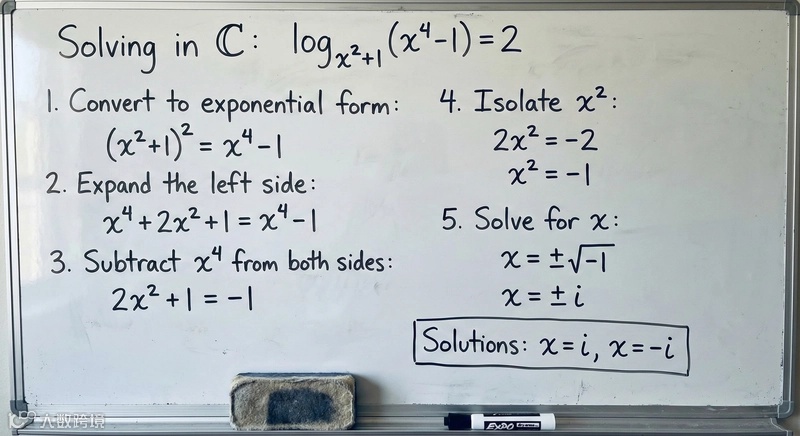 Solving in ℂ: log_{x²+1}(x⁴-1)=2
1. Convert to exponential form:
(x²+1)² = x⁴-1
2. Expand the left side:
x⁴+2x²+1=x⁴-1
3. Subtract x⁴ from both sides:
2x²+1=-1
4. Isolate x²:
2x²=-2
x²=-1
5. Solve for x:
x=±√-1
x=±i
Solutions: x=i, x=-i
EXPO
大数跨境